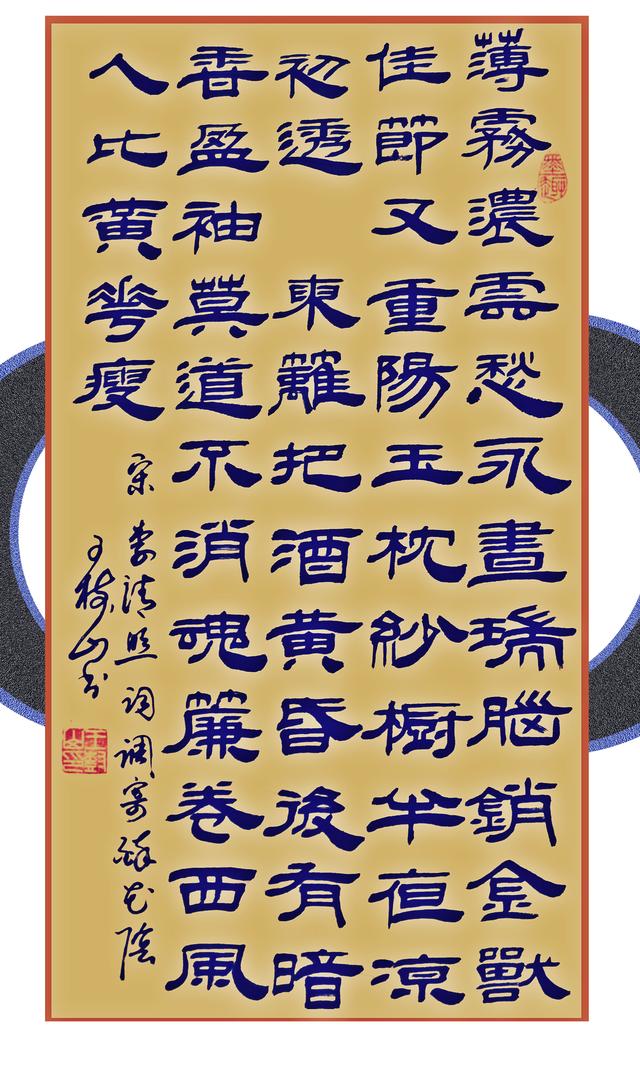 薄霧濃雲愁永晝瑞腦銷金獸
佳節又重陽玉枕紗橱半夜凉
初透 東籬把酒黄昏後有暗
香盈袖莫道不消魂簾卷西風
人比黄花瘦
宋 李清照詞 調寄醉花陰
山书